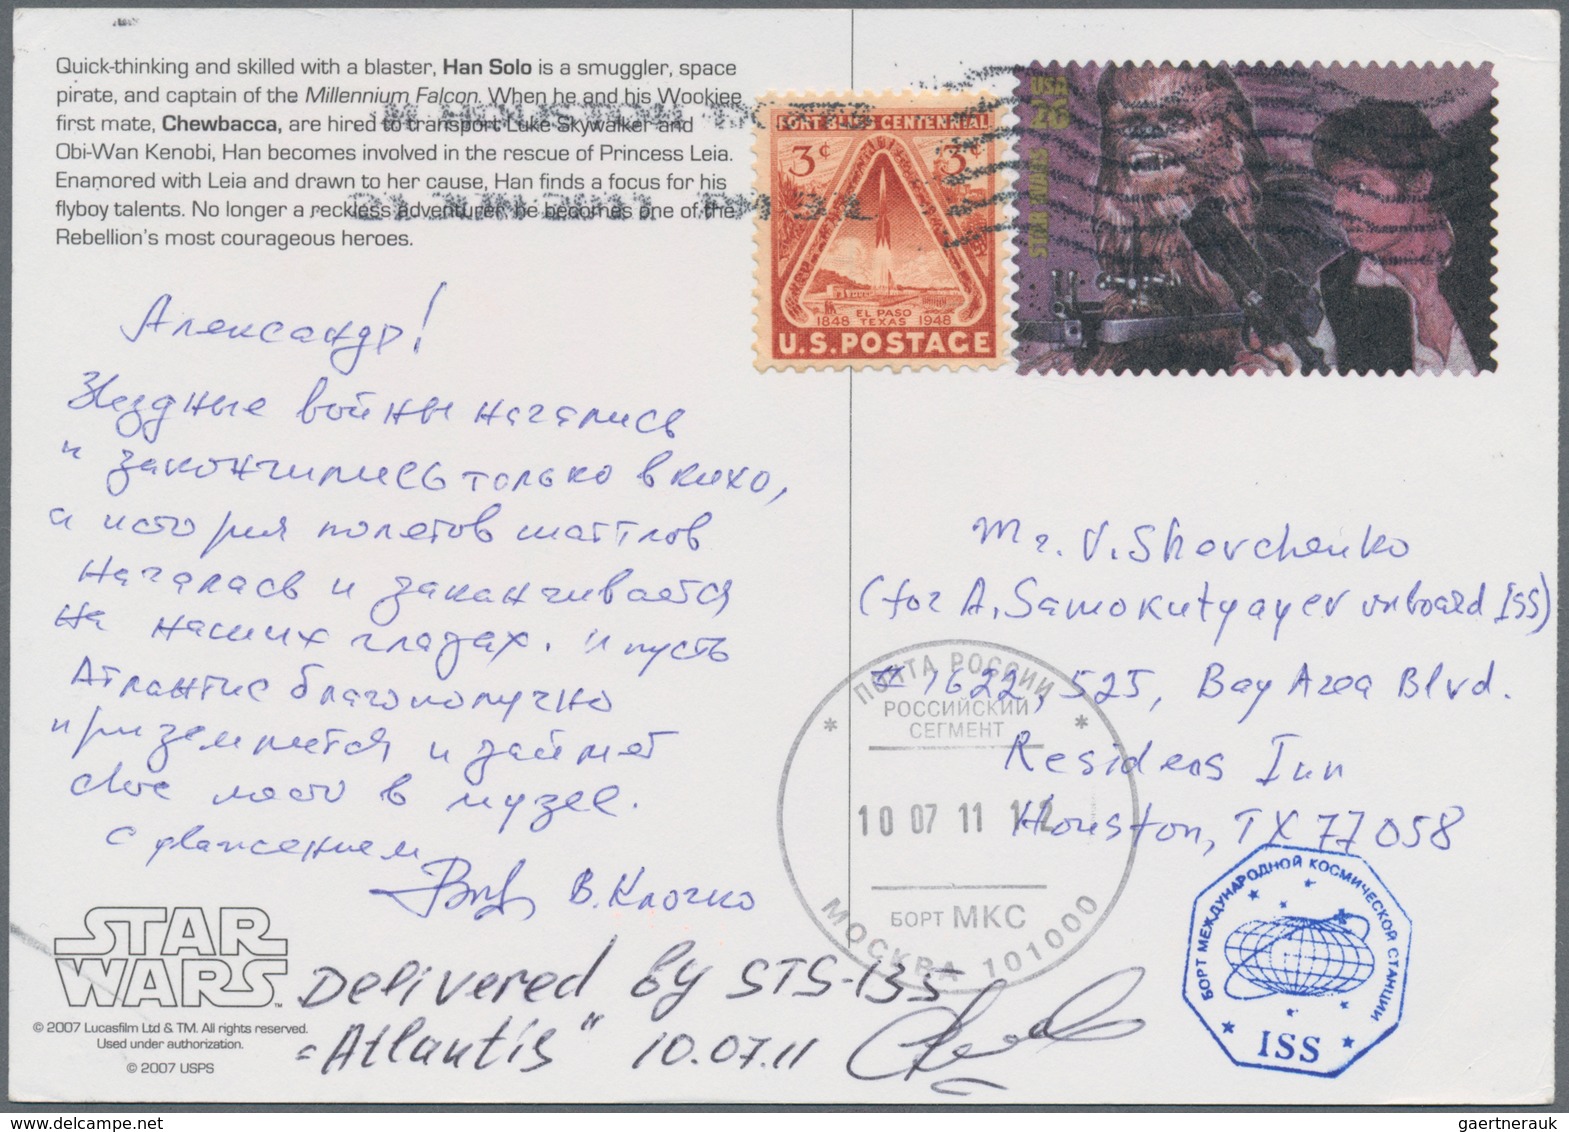 Quick-thinking and skilled with a blaster, Han Solo is a smuggler, space
pirate, and captain of the Millennium Falcon. When he and his Wookiee
first mate, Chewbacca, are hired to transport Luke Skywalker and
Obi-Wan Kenobi, Han becomes involved in the rescue of Princess Leia.
Enamored with Leia and drawn to her cause, Han finds a focus for his
flyboy talents. No longer a reckless adventurer, he becomes one of the
Rebellion's most courageous heroes.
N HOUSTON
FORT BLISS CENTENNIAL
3¢ 3¢
EL PASO
1848 TEXAS 1948
U.S. POSTAGE
USA
26
STAR WARS
Александр!
Звездные войны начались
и закончились только в кино,
а история полетов шаттлов
началась и заканчивается
на наших глазах. И пусть
Атлантис благополучно
приземлится и займет
свое место в музее.
С уважением
В. Клочко
Mr. V. Shevchenko
(for A. Samokutyayev onboard ISS)
# 1622, 525, Bay Area Blvd.
Residens Inn
Houston, TX 77058
* ПОЧТА РОССИИ *
РОССИЙСКИЙ
СЕГМЕНТ
10 07 11 12
БОРТ МКС
МОСКВА 101000
БОРТ МЕЖДУНАРОДНОЙ КОСМИЧЕСКОЙ СТАНЦИИ
ISS
STAR
WARS
TM
© 2007 Lucasfilm Ltd & TM. All rights reserved.
Used under authorization.
© 2007 USPS
Delivered by STS-135
"Atlantis" 10.07.11
gaertnerauk @ delcampe.net